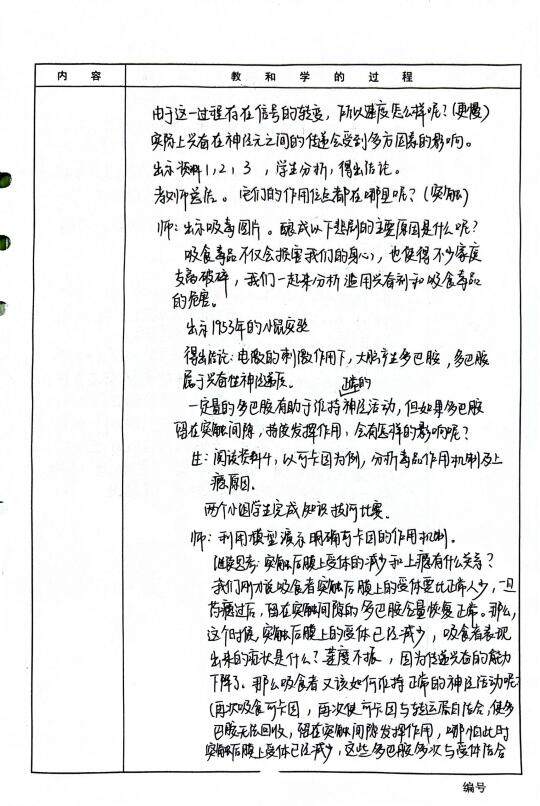 内 容
教 和 学 的 过 程
由于这一过程存在信号的转变,所以速度怎么样呢?(更慢)
实际上兴奋在神经元之间的传递会受到多方因素的影响。
出示资料1,2,3,学生分析,得出结论。
教师总结。它们的作用位点都在哪里呢?(突触)
师:出示吸毒图片。酿成以下悲剧的主要原因是什么呢?
吸食毒品不仅会损害我们的身心,也使得不少家庭
支离破碎,我们一起来分析滥用兴奋剂和吸食毒品
的危害。
出示1953年的小鼠实验
得出结论:电极的刺激作用下,大脑产生多巴胺,多巴胺
属于兴奋性神经递质。
正常的
一定量的多巴胺有助于维持神经活动,但如果多巴胺
留在突触间隙,持续发挥作用,会有怎样的影响呢?
生:阅读资料4,以可卡因为例,分析毒品作用机制及上
瘾原因。
两个小组学生完成知识拔河比赛
师:利用模型演示明确可卡因的作用机制。
继续思考:突触后膜上受体的减少和上瘾有什么关系?
我们刚才说吸食者突触后膜上的受体要比正常人少,一旦
药瘾过后,留在突触间隙的多巴胺含量恢复正常。那么,
这个时候,突触后膜上的受体已经减少,吸食者表现
出来的症状是什么?萎靡不振,因为传递兴奋的能力
下降了。那么吸食者又该如何维持正常的神经活动呢?
(再次吸食可卡因,再次使可卡因与转运蛋白结合,使多
巴胺无法回收,留在突触间隙发挥作用,哪怕此时
突触后膜上受体已经减少,这些多巴胺多次与受体结合
编号